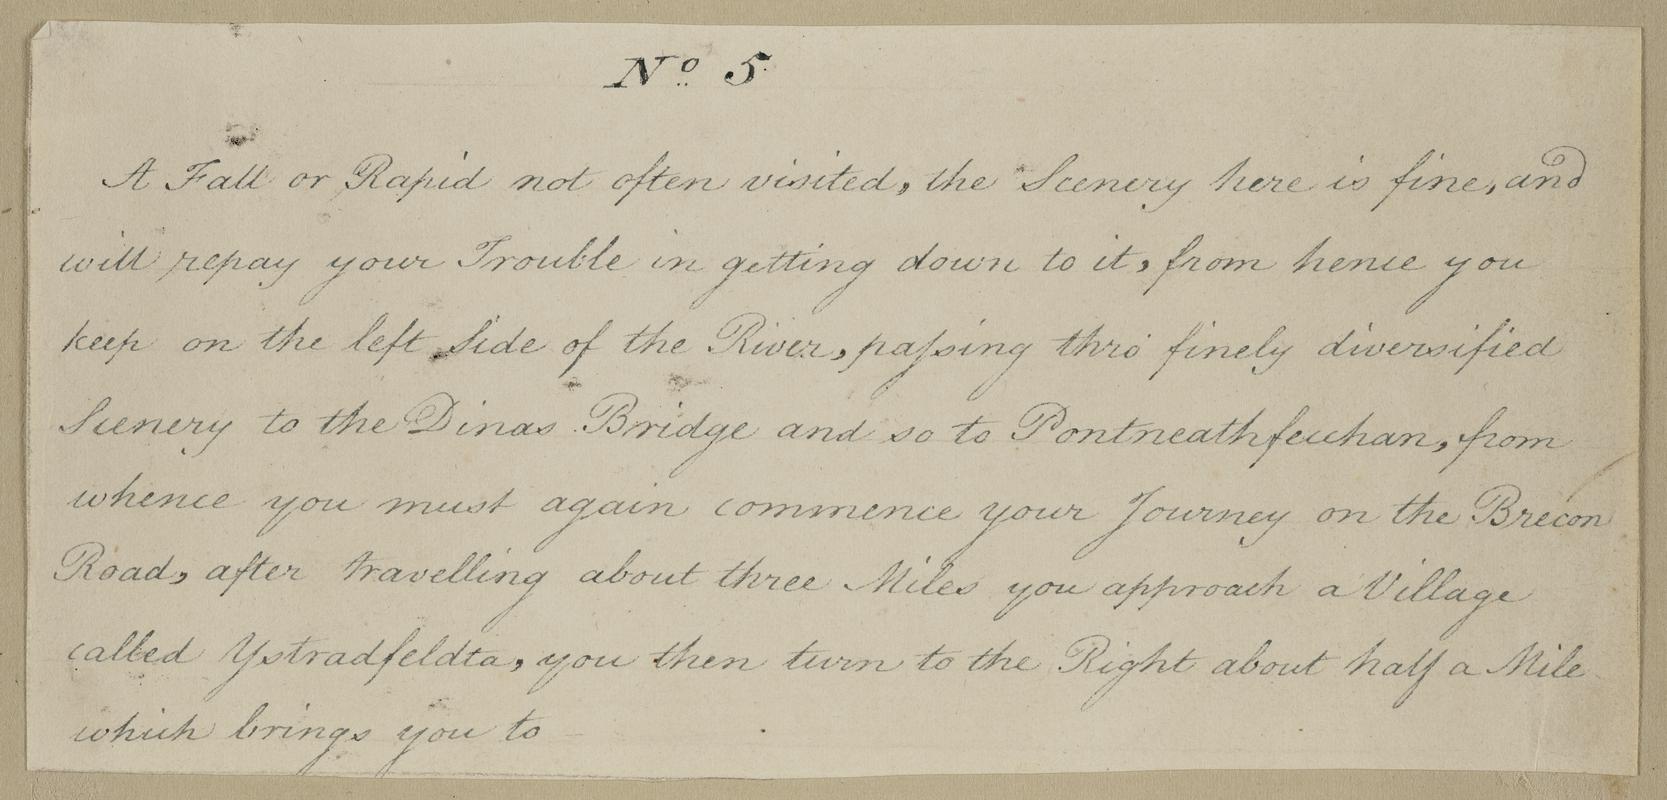 Nº 5
A Fall or Rapid not often visited, the Scenery here is fine, and
will repay your Trouble in getting down to it, from hence you
keep on the left Side of the River, paſsing thro' finely diversified
Scenery to the Dinas Bridge and so to Pontneathfechan, from
whence you must again commence your Journey on the Brecon
Road, after travelling about three Miles you approach a Village
called Ystradfeldta, you then turn to the Right about half a Mile
which brings you to